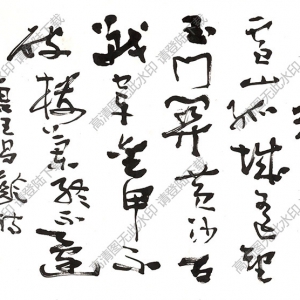 雪山孤城遥望
玉門關黄沙百
戰穿金甲不
破樓蘭終不還
王昌齡詩
高清图无此水印
请登陆下载